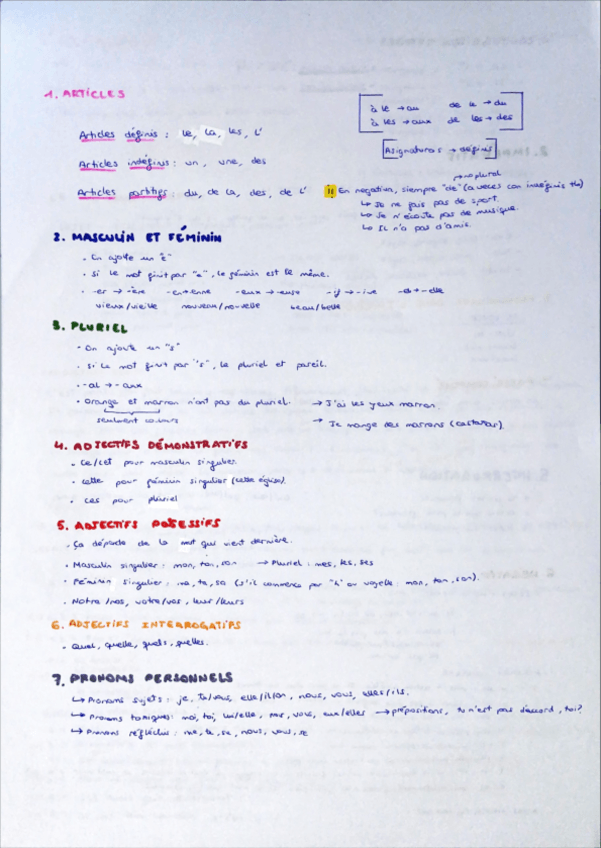 1. ARTICLES
à le → au de le → du
à les → aux de les → des
Articles définis : le, la, les, l'
Asignaturas → définis
Articles indéfinis : un, une, des
→ no plural
Articles partitifs : du, de la, des, de l' !! En negativa, siempre "de" (a veces con indéfinis tb)
↳ Je ne fais pas de sport.
↳ Je n'écoute pas de musique.
↳ Il n'a pas d'amis.
2. MASCULIN ET FÉMININ
• On ajoute un "e"
• Si le mot finit par "e", le féminin est le même.
• -er → -ère -en→enne -eux → -euse -f → -ive -el → -elle
vieux/vieille nouveau/nouvelle beau/belle
3. PLURIEL
• On ajoute un "s"
• Si le mot finit par "s", le pluriel et pareil.
• -al → -aux
• Orange et marron n'ont pas du pluriel. → J'ai les yeux marron.
seulement couleurs → Je mange des marrons (castañas)
4. ADJECTIFS DÉMONSTRATIFS
• Ce/cet pour masculin singulier.
• Cette pour féminin singulier (cette église).
• Ces pour pluriel
5. ADJECTIFS POSESSIFS
• Ça dépende de la mot qui vient derrière.
• Masculin singulier : mon, ton, son → Pluriel : mes, tes, ses
• Féminin singulier : ma, ta, sa (s'il commence par "h" ou voyelle : mon, ton, son).
• Notre/nos, votre/vos, leur/leurs
6. ADJECTIFS INTERROGATIFS
• Quel, quelle, quels, quelles.
7. PRONOMS PERSONNELS
↳ Pronoms sujets : je, tu/vous, elle/il/on, nous, vous, elles/ils.
↳ Pronoms toniques: moi, toi, lui/elle, nous, vous, eux/elles → prépositions, tu n'est pas d'accord, toi?
↳ Pronoms réfléchis : me, te, se, nous, vous, se